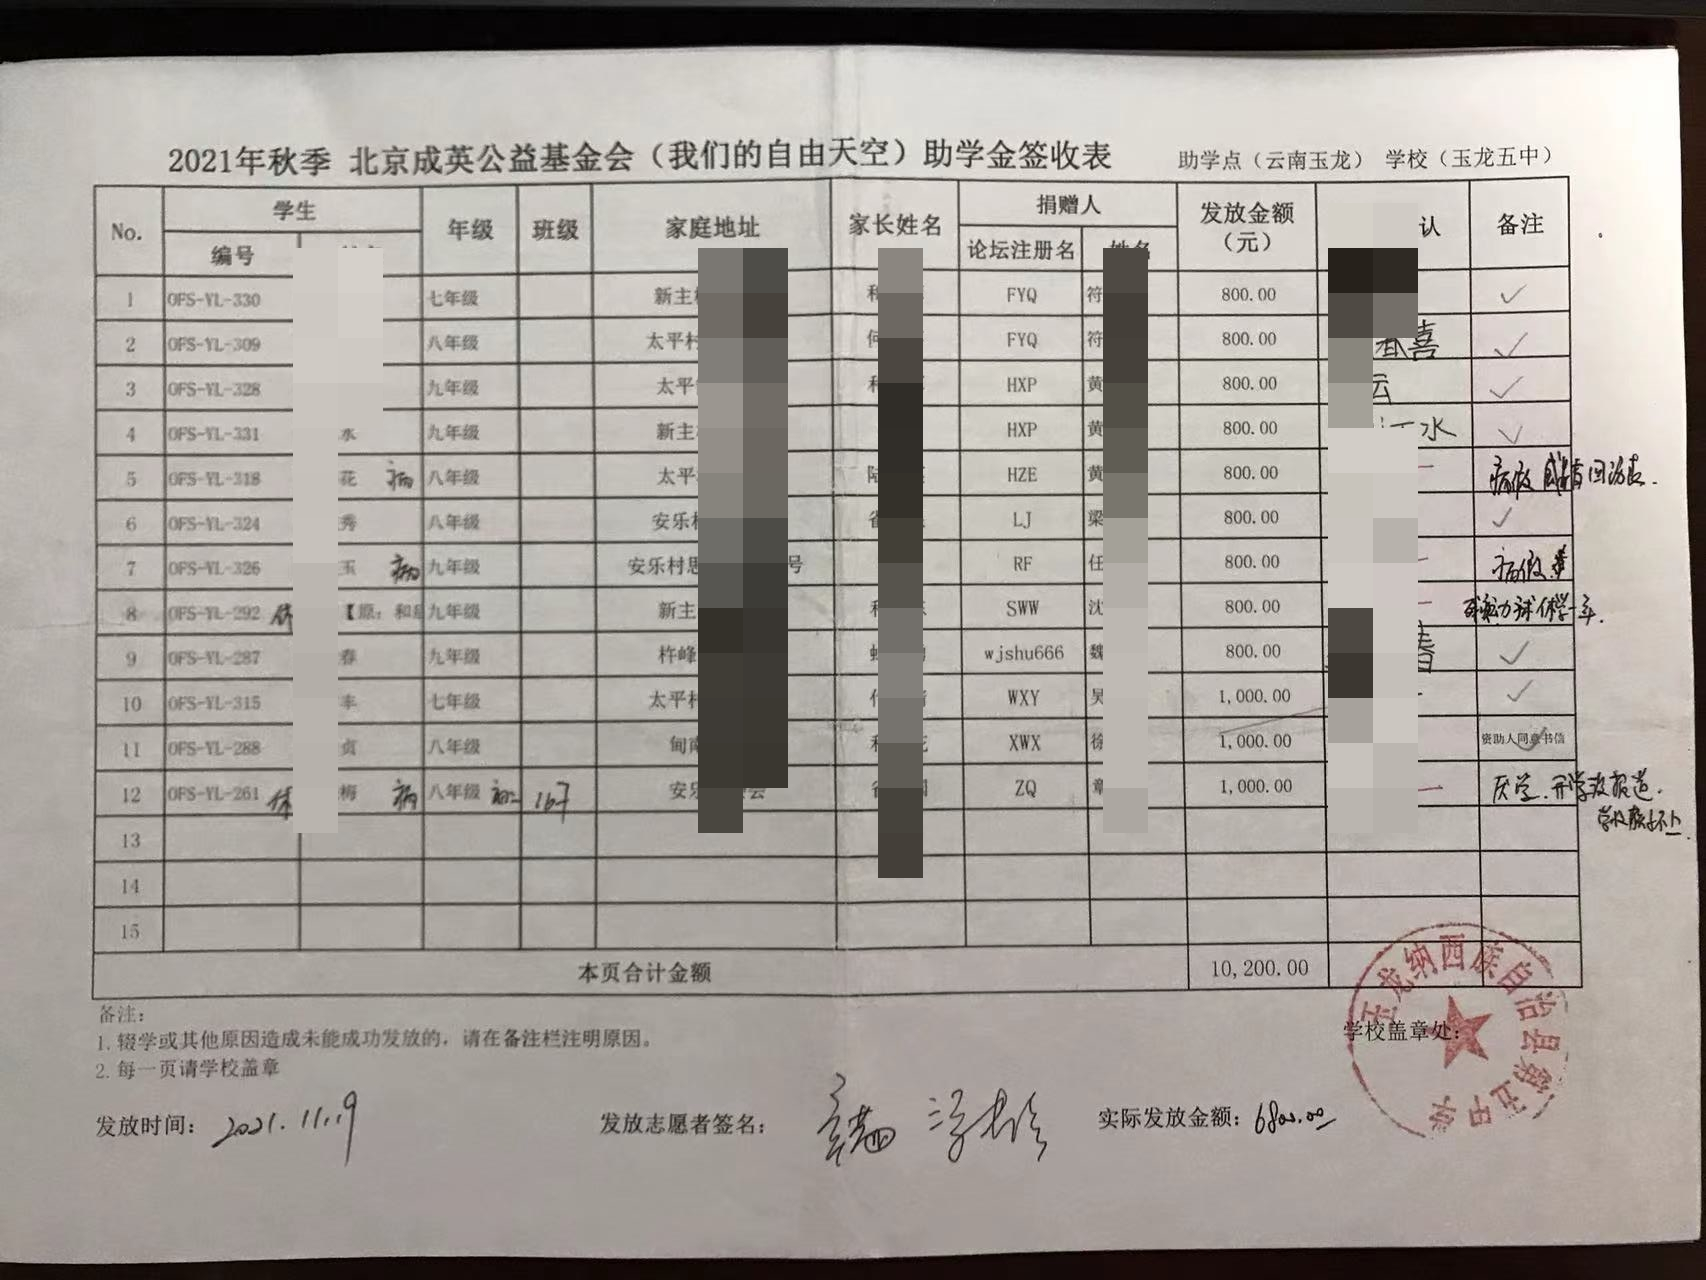 2021年秋季 北京成英公益基金会（我们的自由天空）助学金签收表 助学点（云南玉龙） 学校（玉龙五中）
No. 学生 年级 班级 家庭地址 家长姓名 捐赠人 发放金额（元） 认 备注
编号 论坛注册名 姓名
1 OFS-YL-330 七年级 新主 FYQ 符 800.00 ✓
2 OFS-YL-309 八年级 太平村 FYQ 符 800.00 喜 ✓
3 OFS-YL-328 九年级 太平 HXP 黄 800.00 云 ✓
4 OFS-YL-331 水 九年级 新主 HXP 黄 800.00 水 ✓
5 OFS-YL-318 花 病 八年级 太平 HZE 黄 800.00 病假
6 OFS-YL-324 秀 八年级 安乐村 LJ 梁 800.00 ✓
7 OFS-YL-326 玉 病 九年级 安乐村思 号 RF 任 800.00 病假
8 OFS-YL-292 休 【原：和 九年级 新主 SWW 沈 800.00 休学一年.
9 OFS-YL-287 春 九年级 杵峰 wjshu666 魏 800.00 春 ✓
10 OFS-YL-315 丰 七年级 太平村 WXY 吴 1,000.00 ✓
11 OFS-YL-288 贞 八年级 甸南 XWX 徐 1,000.00 资助人同意书信 ✓
12 OFS-YL-261 休 梅 病 八年级 初二 167 安乐 ZQ 章 1,000.00 厌学.开学没报道.
13
14
15
本页合计金额 10,200.00
备注：
1. 辍学或其他原因造成未能成功发放的，请在备注栏注明原因。
2. 每一页请学校盖章
学校盖章处：
玉龙纳西族自治县第五中学
发放时间：2021.11.19 发放志愿者签名： 实际发放金额：6800.00